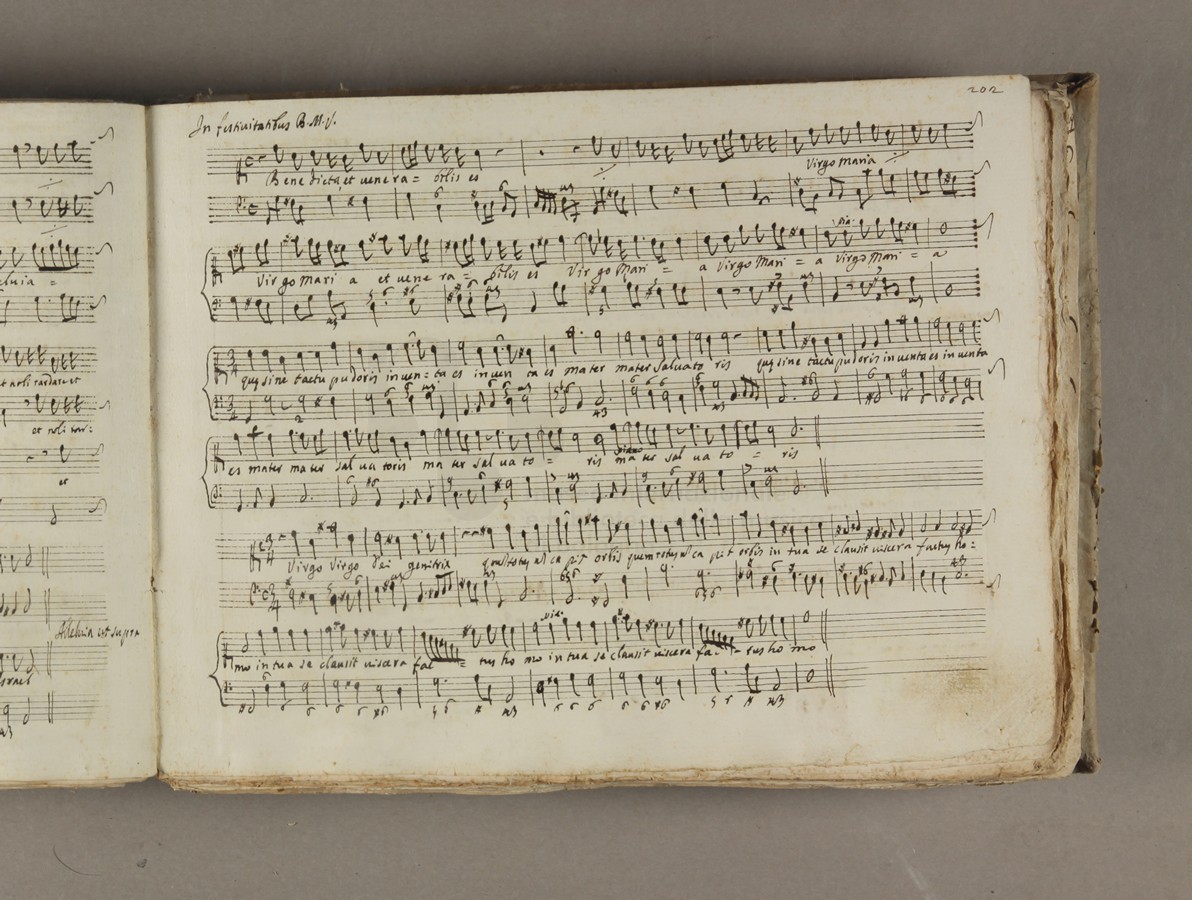 eluia =
et noli tardare et
et noli tar:
et
Alleluia ut supra
Israel
202
In festiuitatibus B. M. V.
Bene dicta et uene ra = bilis es
Virgo Maria
Virgo Mari a et uene ra = bilis es Vir go Mari = a Virgo Mari = a Virgo Mari = a
pia.
quę sine tactu pudoris inuen = ta es inuen ta es mater mater saluato ris quę sine tactu pudoris inuenta es inuenta
es mater mater sal ua toris ma ter sal ua to = ris ma ter sal ua to = ris
piano
Virgo Virgo Dei genitrix quem totus nō ca pit orbis quem totus nō ca pit orbis in tua se clausit uiscera factus ho =
mo in tua se clausit uiscera fac = tus ho mo in tua se clausit uiscera fac = tus ho mo
pia.